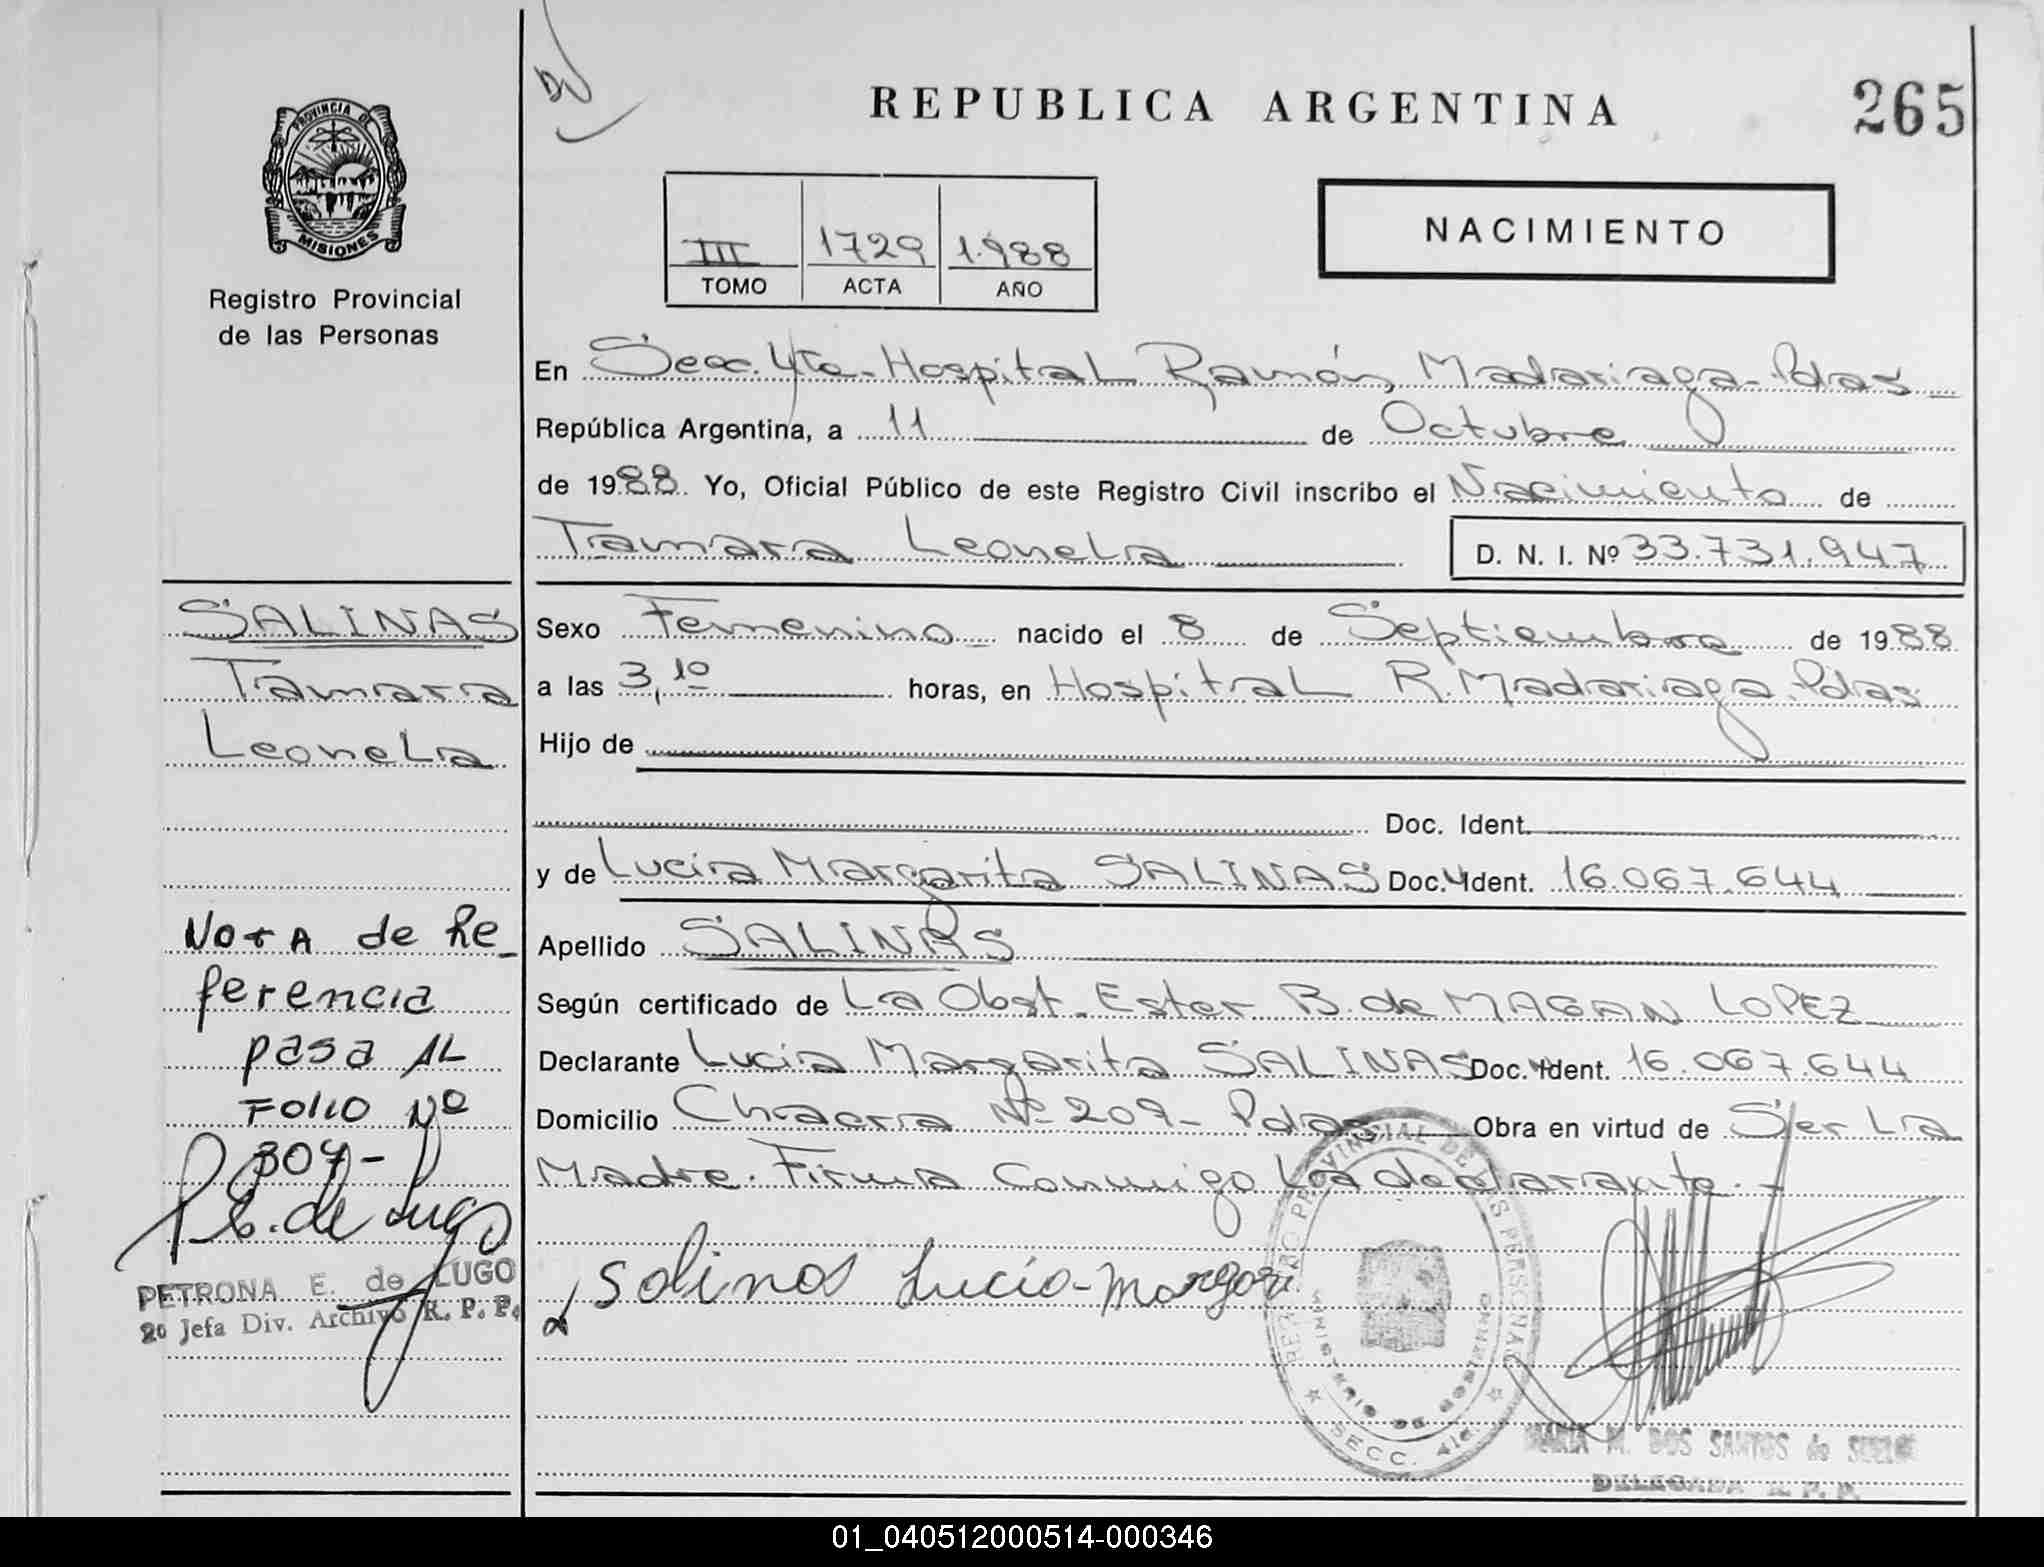 REPUBLICA ARGENTINA
265
PROVINCIA DE
MISIONES
Registro Provincial
de las Personas
III 1729 1.988
TOMO ACTA AÑO
NACIMIENTO
En Secc. 4ta- Hospital Ramón Madariaga- Pdas
República Argentina, a 11 de Octubre
de 1988. Yo, Oficial Público de este Registro Civil inscribo el Nacimiento de
Tamara Leonela D. N. I. Nº 33.731.947
SALINAS
Tamara
Leonela
Sexo Femenino nacido el 8 de Septiembre de 1988
a las 3,10 horas, en Hospital R. Madariaga. Pdas
Hijo de
Doc. Ident.
y de Lucia Margarita SALINAS Doc. Ident. 16.067.644
Apellido SALINAS
Según certificado de La Obst. Ester B. de MAGAN LOPEZ
Declarante Lucia Margarita SALINAS Doc. Ident. 16.067.644
Domicilio Chacra Nº 209- Pdas Obra en virtud de Ser La
Madre. Firma Conmigo La declarante.-
Nota de Re_
ferencia
pasa AL
FOLIO Nº
304-
P.E. de Lugo
PETRONA E. de LUGO
2º Jefa Div. Archivo R. P. P.
Salinas Lucia-Margari
REGISTRO PROVINCIAL DE LAS PERSONAS
MINISTERIO DE GOBIERNO
SECC. 4ta.
MARIA M. DOS SANTOS de
DELEGADA R. P. P.
01_040512000514-000346